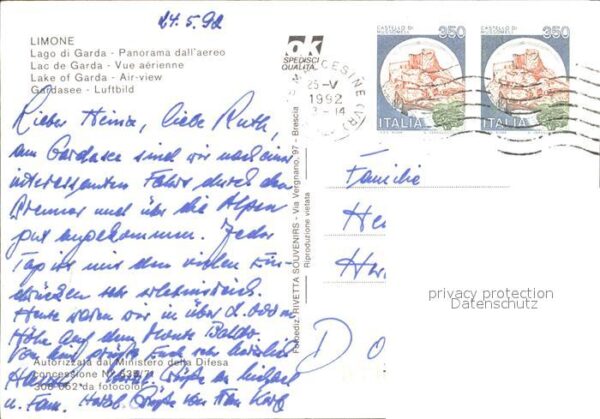 24.5.92
LIMONE
Lago di Garda - Panorama dall'aereo
Lac de Garda - Vue aérienne
Lake of Garda - Air-view
Gardasee - Luftbild
ok
SPEDISCI
QUALITÀ
MALCESINE (VR)
25-V
1992
-14
CASTELLO DI
MUSSOMELI
350
ITALIA
CASTELLO DI
MUSSOMELI
350
ITALIA
Lieber Heinz, liebe Ruth,
am Gardasee sind wir nach einer
interessanten Fahrt durch den
Brenner und über die Alpen
gut angekommen. Jeder
Tag ist mit den vielen Ein-
drücken sehr erlebnisreich.
Heute waren wir in über 2.000 m
Höhe auf dem Monte Baldo.
Von hier grüßt Euch sehr herzlich
Grüße an Michael
u. Fam. Herzl. Grüße von
Autorizzata dal Ministero della Difesa
concessione N. 638/71
308 062 da fotocolor
Fotoediz. RIVETTA SOUVENIRS - Via Vergnano, 97 - Brescia
Riproduzione vietata
Familie
He
H
D
privacy protection
Datenschutz